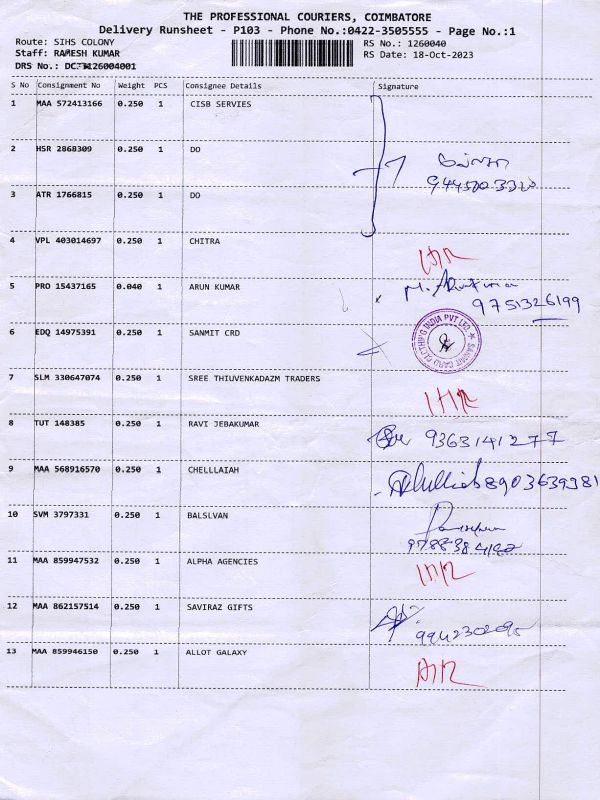 THE PROFESSIONAL COURIERS, COIMBATORE
Delivery Runsheet - P103 - Phone No.:0422-3505555 - Page No.:1
Route: SIHS COLONY RS No.: 1260040
Staff: RAMESH KUMAR RS Date: 18-Oct-2023
DRS No.:
S No Consignment No Weight PCS Consignee Details Signature
1 MAA 572413166 0.250 1 CISB SERVIES
2 HSR 2868309 0.250 1 DO
3 ATR 1766815 0.250 1 DO
4 VPL 403014697 0.250 1 CHITRA
5 PRO 15437165 0.040 1 ARUN KUMAR M. Arunkumar
9751326199
6 EDQ 14975391 0.250 1 SANMIT CRD
7 SLM 330647074 0.250 1 SREE THIUVENKADAZM TRADERS
8 TUT 148385 0.250 1 RAVI JEBAKUMAR 9363141277
9 MAA 568916570 0.250 1 CHELLLAIAH 8903639381
10 SVM 3797331 0.250 1 BALSLVAN
11 MAA 859947532 0.250 1 ALPHA AGENCIES
12 MAA 862157514 0.250 1 SAVIRAZ GIFTS
13 MAA 859946150 0.250 1 ALLOT GALAXY